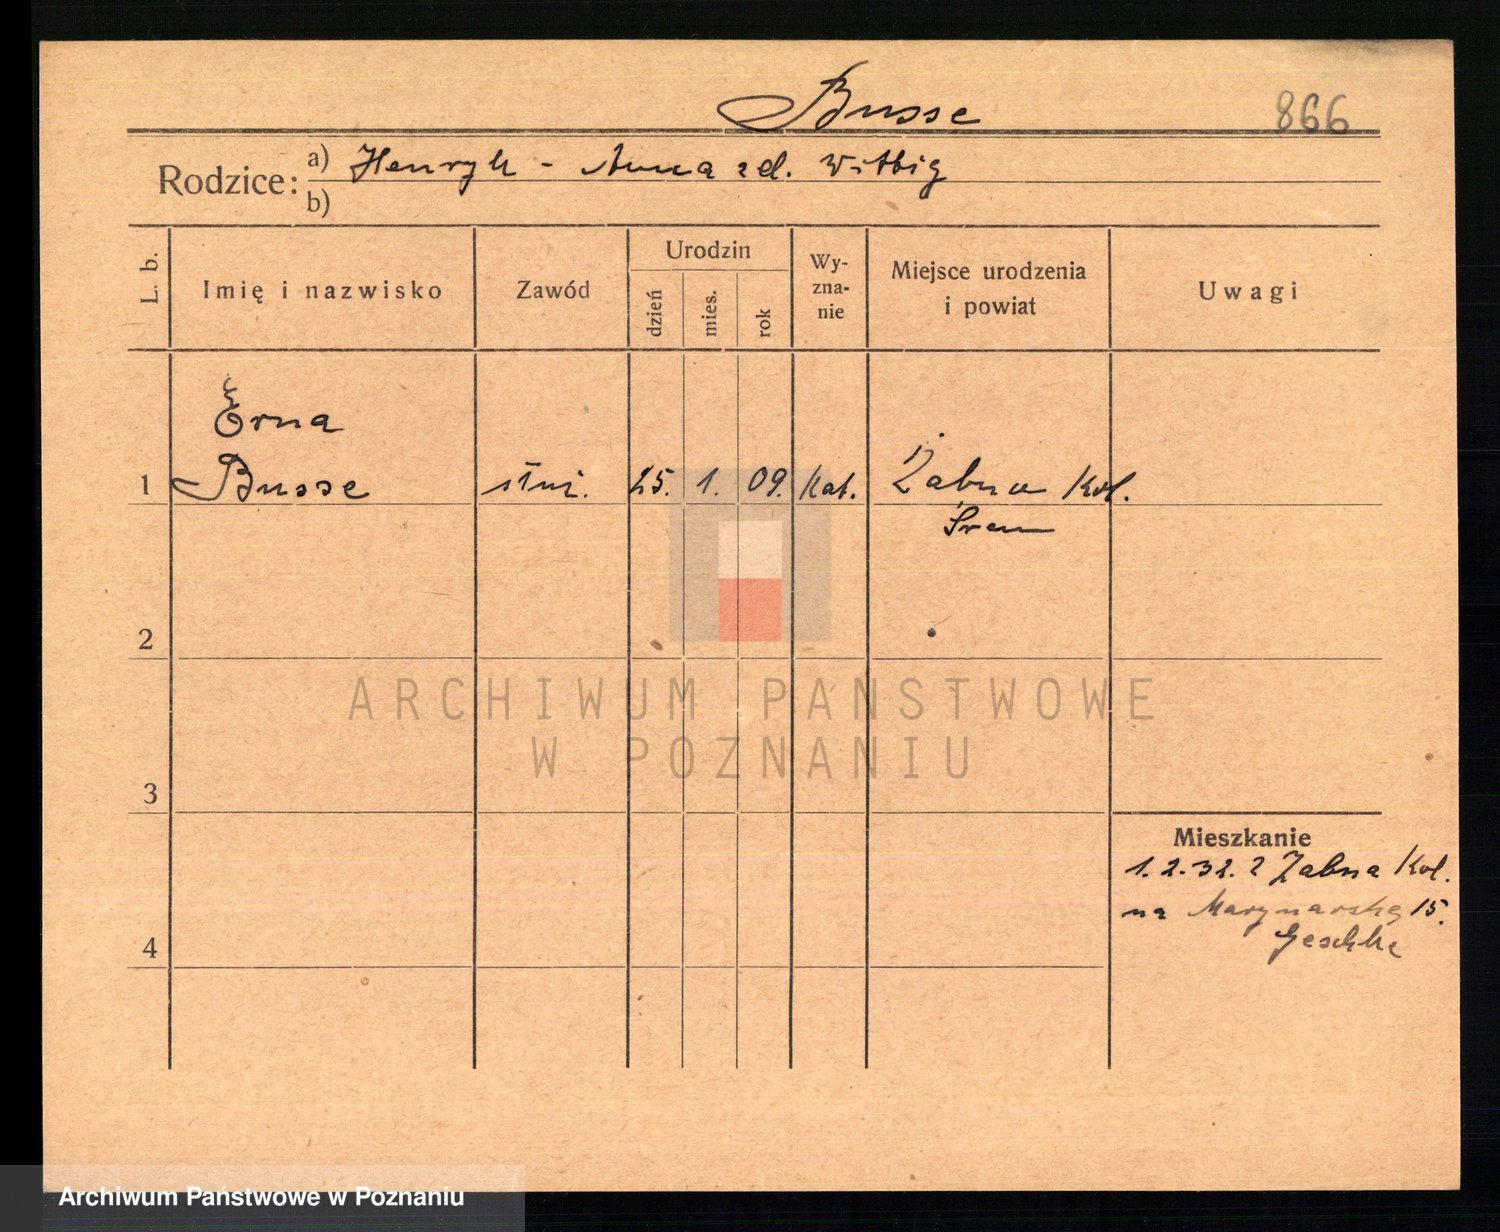 Busse
866
Rodzice:
a) Henryk - Anna zd. Wittig
b)
L. b.
Imię i nazwisko
Zawód
Urodzin
dzień
mies.
rok
Wy-
zna-
nie
Miejsce urodzenia
i powiat
Uwagi
Erna
1 Busse służ. 25. 1. 09. Kat. Żabno Kol.
Śrem
2
ARCHIWUM PAŃSTWOWE
W POZNANIU
3
Mieszkanie
1.2.32. z Żabna Kol.
4
na Marynarską 15.
Geschke
Archiwum Państwowe w Poznaniu